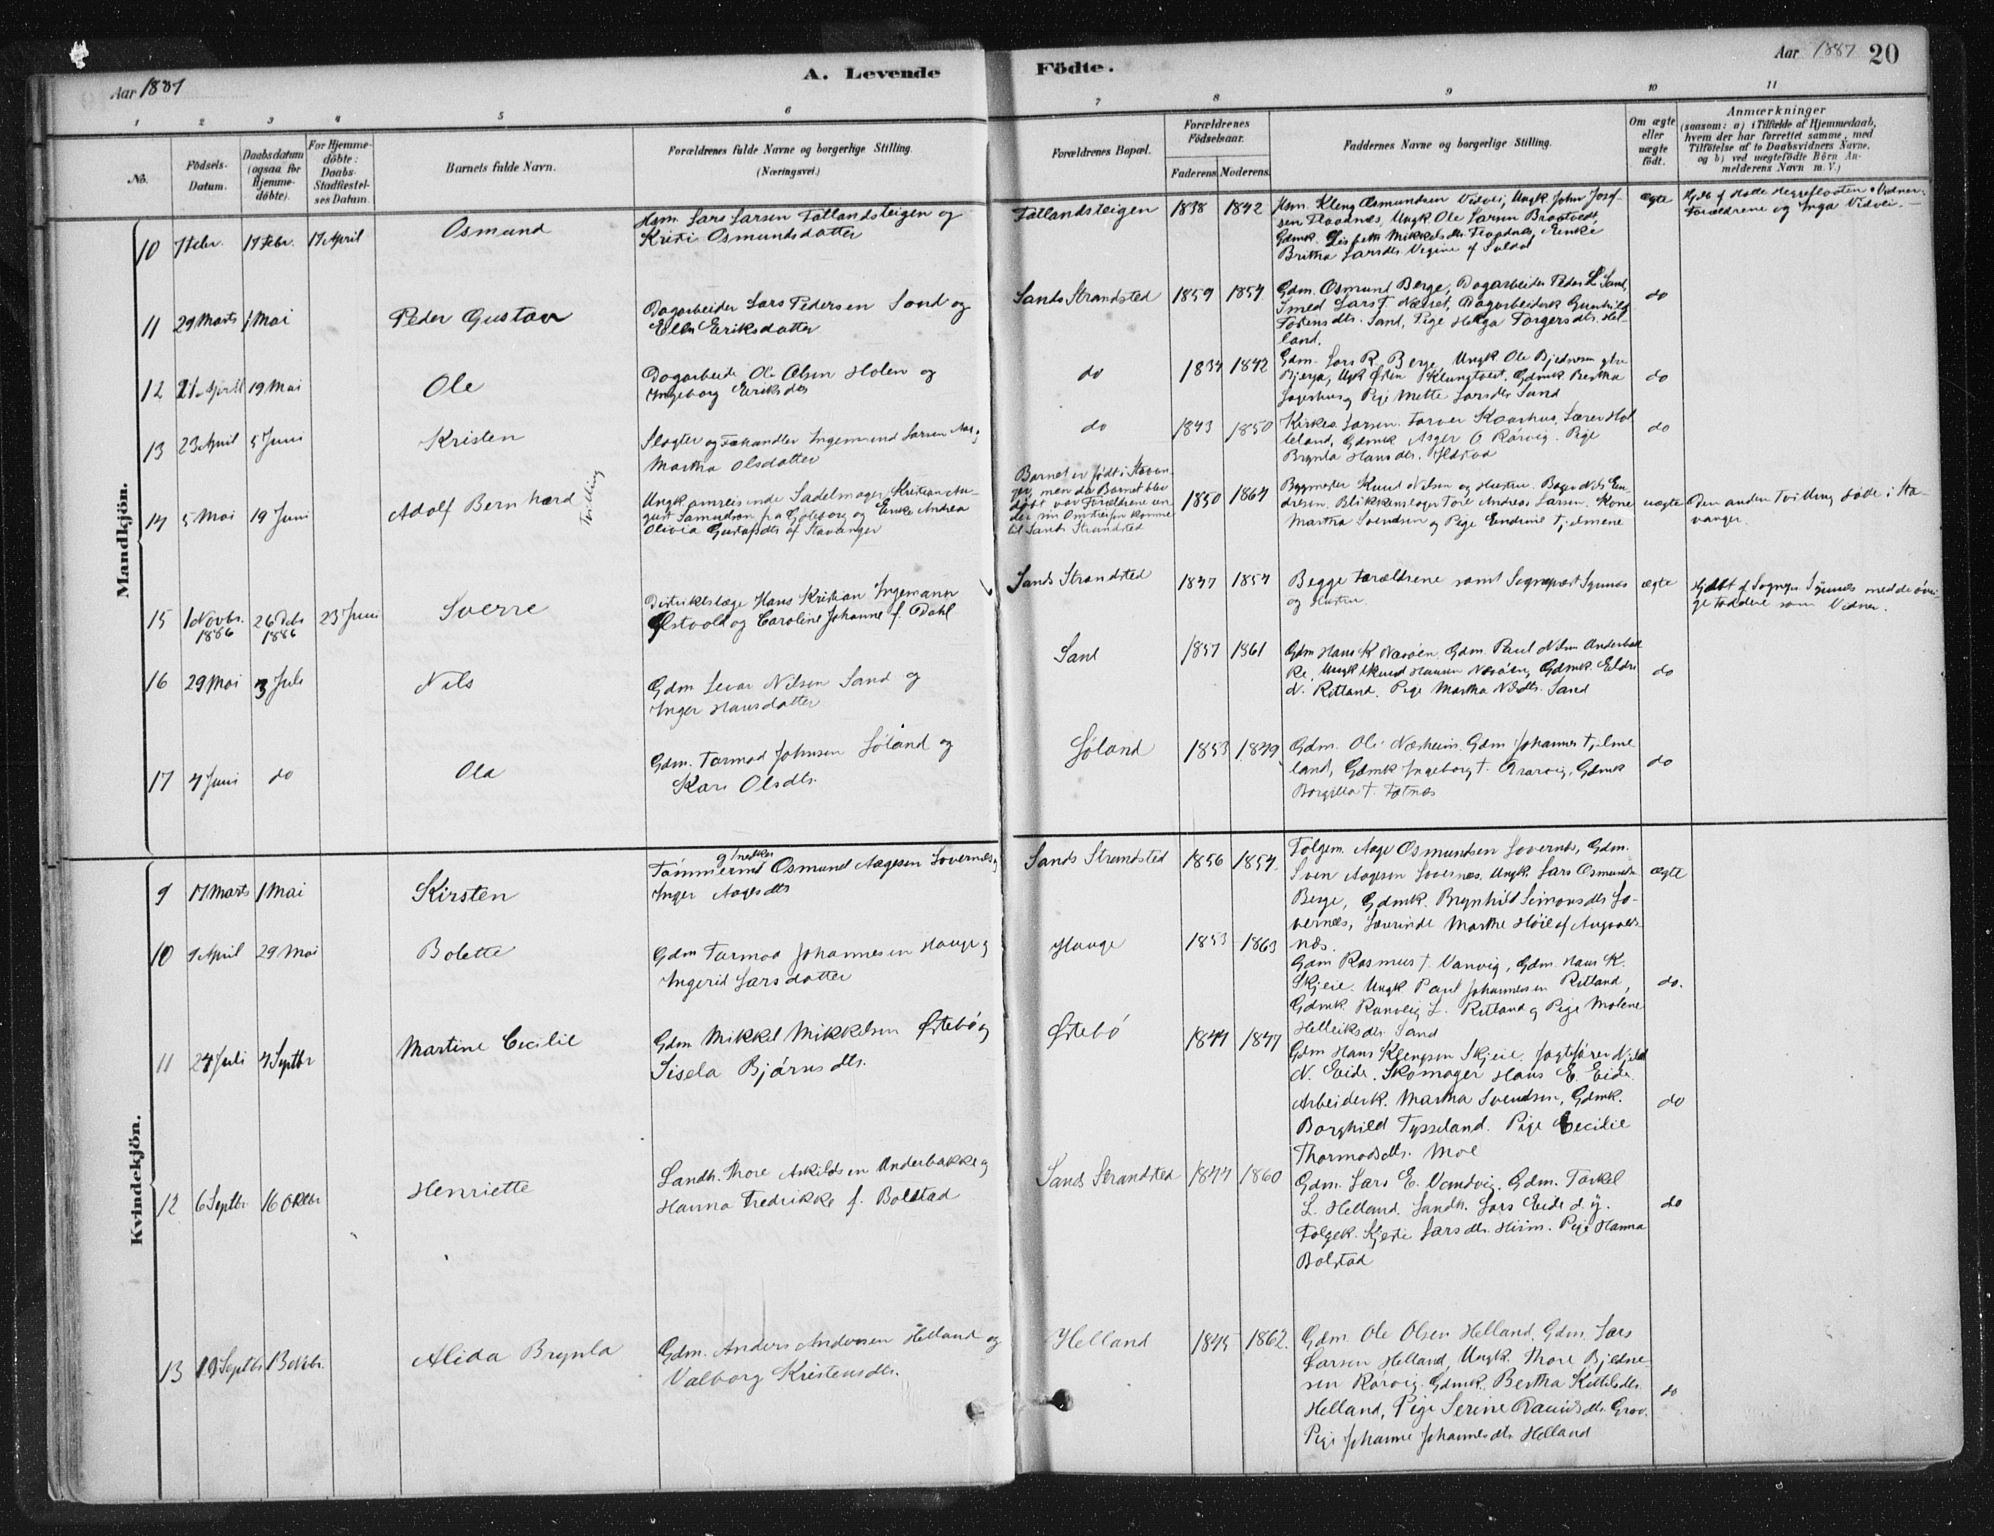 Aar 1887
A. Levende
Födte.
Aar 1887
20
1
2
3
4
5
6
7
8
9
10
11
No.
Födsels-
Datum.
Daabsdatum
(ogsaa for
Hjemme-
döbte).
For Hjemme-
döbte:
Daabs-
Stadfæstel-
ses Datum.
Barnets fulde Navn.
Forældrenes fulde Navne og borgerlige Stilling.
(Næringsvei.)
Forældrenes Bopæl.
Forældrenes
Födselsaar.
Faderens
Moderens.
Faddernes Navne og borgerlige Stilling.
Om ægte
eller
uægte
födt.
Anmærkninger
(saasom: a) i Tilfælde af Hjemmedaab,
hvem der har forrettet samme, med
Tilföielse af to Daabsvidners Navne,
og b) ved uægtefödte Börn An-
melderens Navn m. V.)
Mandkjön.
10
7 Febr.
17 Febr.
17 April
Osmund
Hsm. Lars Larsen Fatlandsteigen og
Kristi Osmundsdatter
Fatlandsteigen
1838
1842
Hsm. Kleng Osmundsen Vidvei, Ungk John Josef-
sen Flaadnæs, Ungk Ole Larsen Bratvedt,
Gdmk. Lisbeth Mikkelsdtr. Flaadnæs, Enke
Britha Larsdtr. Vegine af Suldal
ægte
Forældrene og Inga Vidvei.
11
29 Marts
1 Mai
Peder Gustav
Dagarbeider Lars Pedersen Sand og
Elen Eriksdatter
Sands Strandsted
1859
1854
Gdm. Osmund Berge, Dagarbeider Peder L Sand,
Smed Lars T Næset, Dagarbeiderk Gunhild
Tostensdtr. Sand, Pige Helga Torgersdtr. Hel-
land.
do
12
21 April
19 Mai
Ole
Dagarbeide Ole Olsen Holen og
Ingeborg Eriksdtr
do
1834
1842
Gdm. Lars R. Berge, Ungk Ole Bjednesen
Gdmk Bertha
og Pige Mette Larsdtr. Sand
do
13
23 April
5 Juni
Kristen
Slagter og Fæhandler Ingemund Larsen
Martha Olsdatter
do
1843
1850
Kirkes. Larsen. Farver Kaarhus, Lærer Hol-
leland, Gdmk Asger O Rörvig. Pige
Brynla Hansdtr.
do
14
5 Mai
19 Juni
Adolf Bernhard
Tvilling
Ungk omreisende Sadelmager Kristian Au-
gust Samuelson fra Göteborg og Enke Andrea
Olivia Gustafsdtr af Stavanger
Barnet er födt i Stavan-
ger, men da Barnet blev
döbt var Forældrene un-
der sin Omreisen komne
til Sands Strandsted
1850
1864
Bygmester Knud Nilsen og Hustru. Bager Nils En-
dresen. Blikkenslager Tore Andreas Larsen. Kone
Martha Svendsen og Pige Endrine Tjelmene
uægte
Den anden Tvilling döde i Sta-
vanger.
15
1 Novbr.
1886
26 Debr
1886
23 Juni
Sverre
Distriktslæge Hans Kristian Ingemann
Østvold og Caroline Johanne f. Dahl
Sands Strandsted
1847
1854
Begge Forældrene samt Sognepræst
og Hustru.
ægte
Hjdbt af Sognepr. med de övri-
ge Faddere som Vidner.
16
29 Mai
3 Juli
Nils
Gdm Levar Nilsen Sand og
Inger Hansdatter
Sand
1857
1861
Gdm Hans K Nærøen. Gdm. Paul Nilsen Anderbak-
ke, Ungk Knud Hansen Nærøen, Gdmk. Eldri
N. Ritland. Pige Martha Nilsdtr. Sand
do
17
4 Juni
do
Ola
Gdm. Tormod Johnsen Söland og
Kari Olsdtr.
Söland
1853
1849
Gdm. Ole Næsheim. Gdm Johannes Tjelme-
land, Gdmk Ingeborg T. Gdmk
T. Totnæs
do
Kvindekjön.
9
17 Marts
1 Mai
Kirsten
og Snedker
Tömmermd Osmund Aagesen Lovernæs og
Inger Aagesdtr
Sands Strandsted
1856
1854
Folgem. Aage Osmundsen Lovernæs, Gdm.
Sven Aagesen Lovernæs. Ungk. Lars Osmundsen
Berge, Gdmk. Brynhild Simonsdtr Lo-
vernæs, Marthe Höie af Avgvalds-
næs.
ægte
10
9 April
29 Mai
Bolette
Gdm Tormod Johannesen Hauge og
Ingerid Larsdatter
Hauge
1853
1863
Gdm Rasmus T. Vanvig, Gdm. Hans K.
Skjeie. Ungk. Paul Johannesen Ritland,
Gdmk. Ranveig L. Ritland og Pige Malene
Helleiksdtr. Sand
do.
11
24 Juli
4 Septbr
Martine Cecilie
Gdm Mikkel Mikkelsen Østebø og
Sisela Bjørnsdtr.
Østebø
1844
1847
Gdm Hans Klengsen Skjeie. Jagtefører Njeld
N. Eide. Skomager Hans E. Eide.
Arbeiderk. Martha Svendsen, Gdmk.
Borghild Tysseland. Pige Cecilie
Thormodsdtr. Moe
do
12
6 Septbr.
16 Oktbr
Henriette
Landh. Thore Askildsen Anderbakke og
Hanna Fredrikke f. Bolstad
Sands Strandsted
1844
1860
Gdm. Lars E. Vandvig. Gdm. Torkel
L. Helland. Landh. Lars Eide d. y.
Folgek. Kjersti Larsdtr. Hiim. Pige Hanna
Bolstad
do
13
19 Septbr
13 Novbr.
Alida Brynla
Gdm. Anders Andersen Helland og
Valborg Kristensdtr.
Helland
1845
1862.
Gdm. Ole Olsen Helland. Gdm. Lars
Larsen Helland, Ungk. Thore Bjedne-
sen Rörvig. Gdmk. Bertha Kittelsdtr.
Helland, Pige Serine Davidsdtr. Grov.
Pige Johanne Johannesdtr. Helland
do